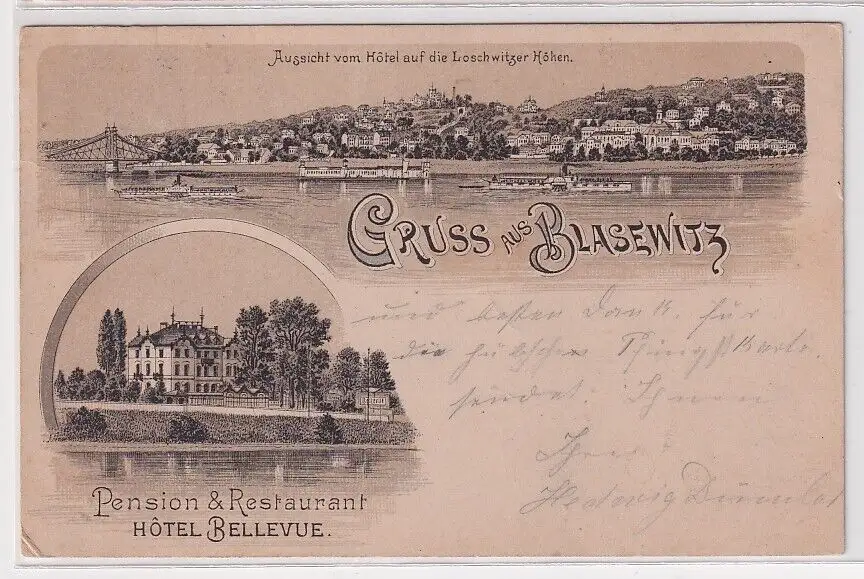 Aussicht vom Hôtel auf die Loschwitzer Höhen.
GRUSS AUS BLASEWITZ
und besten Dank für
die hübsche Pfingstkarte
sendet Ihnen
Ihre
Hedwig
Pension & Restaurant
HÔTEL BELLEVUE.